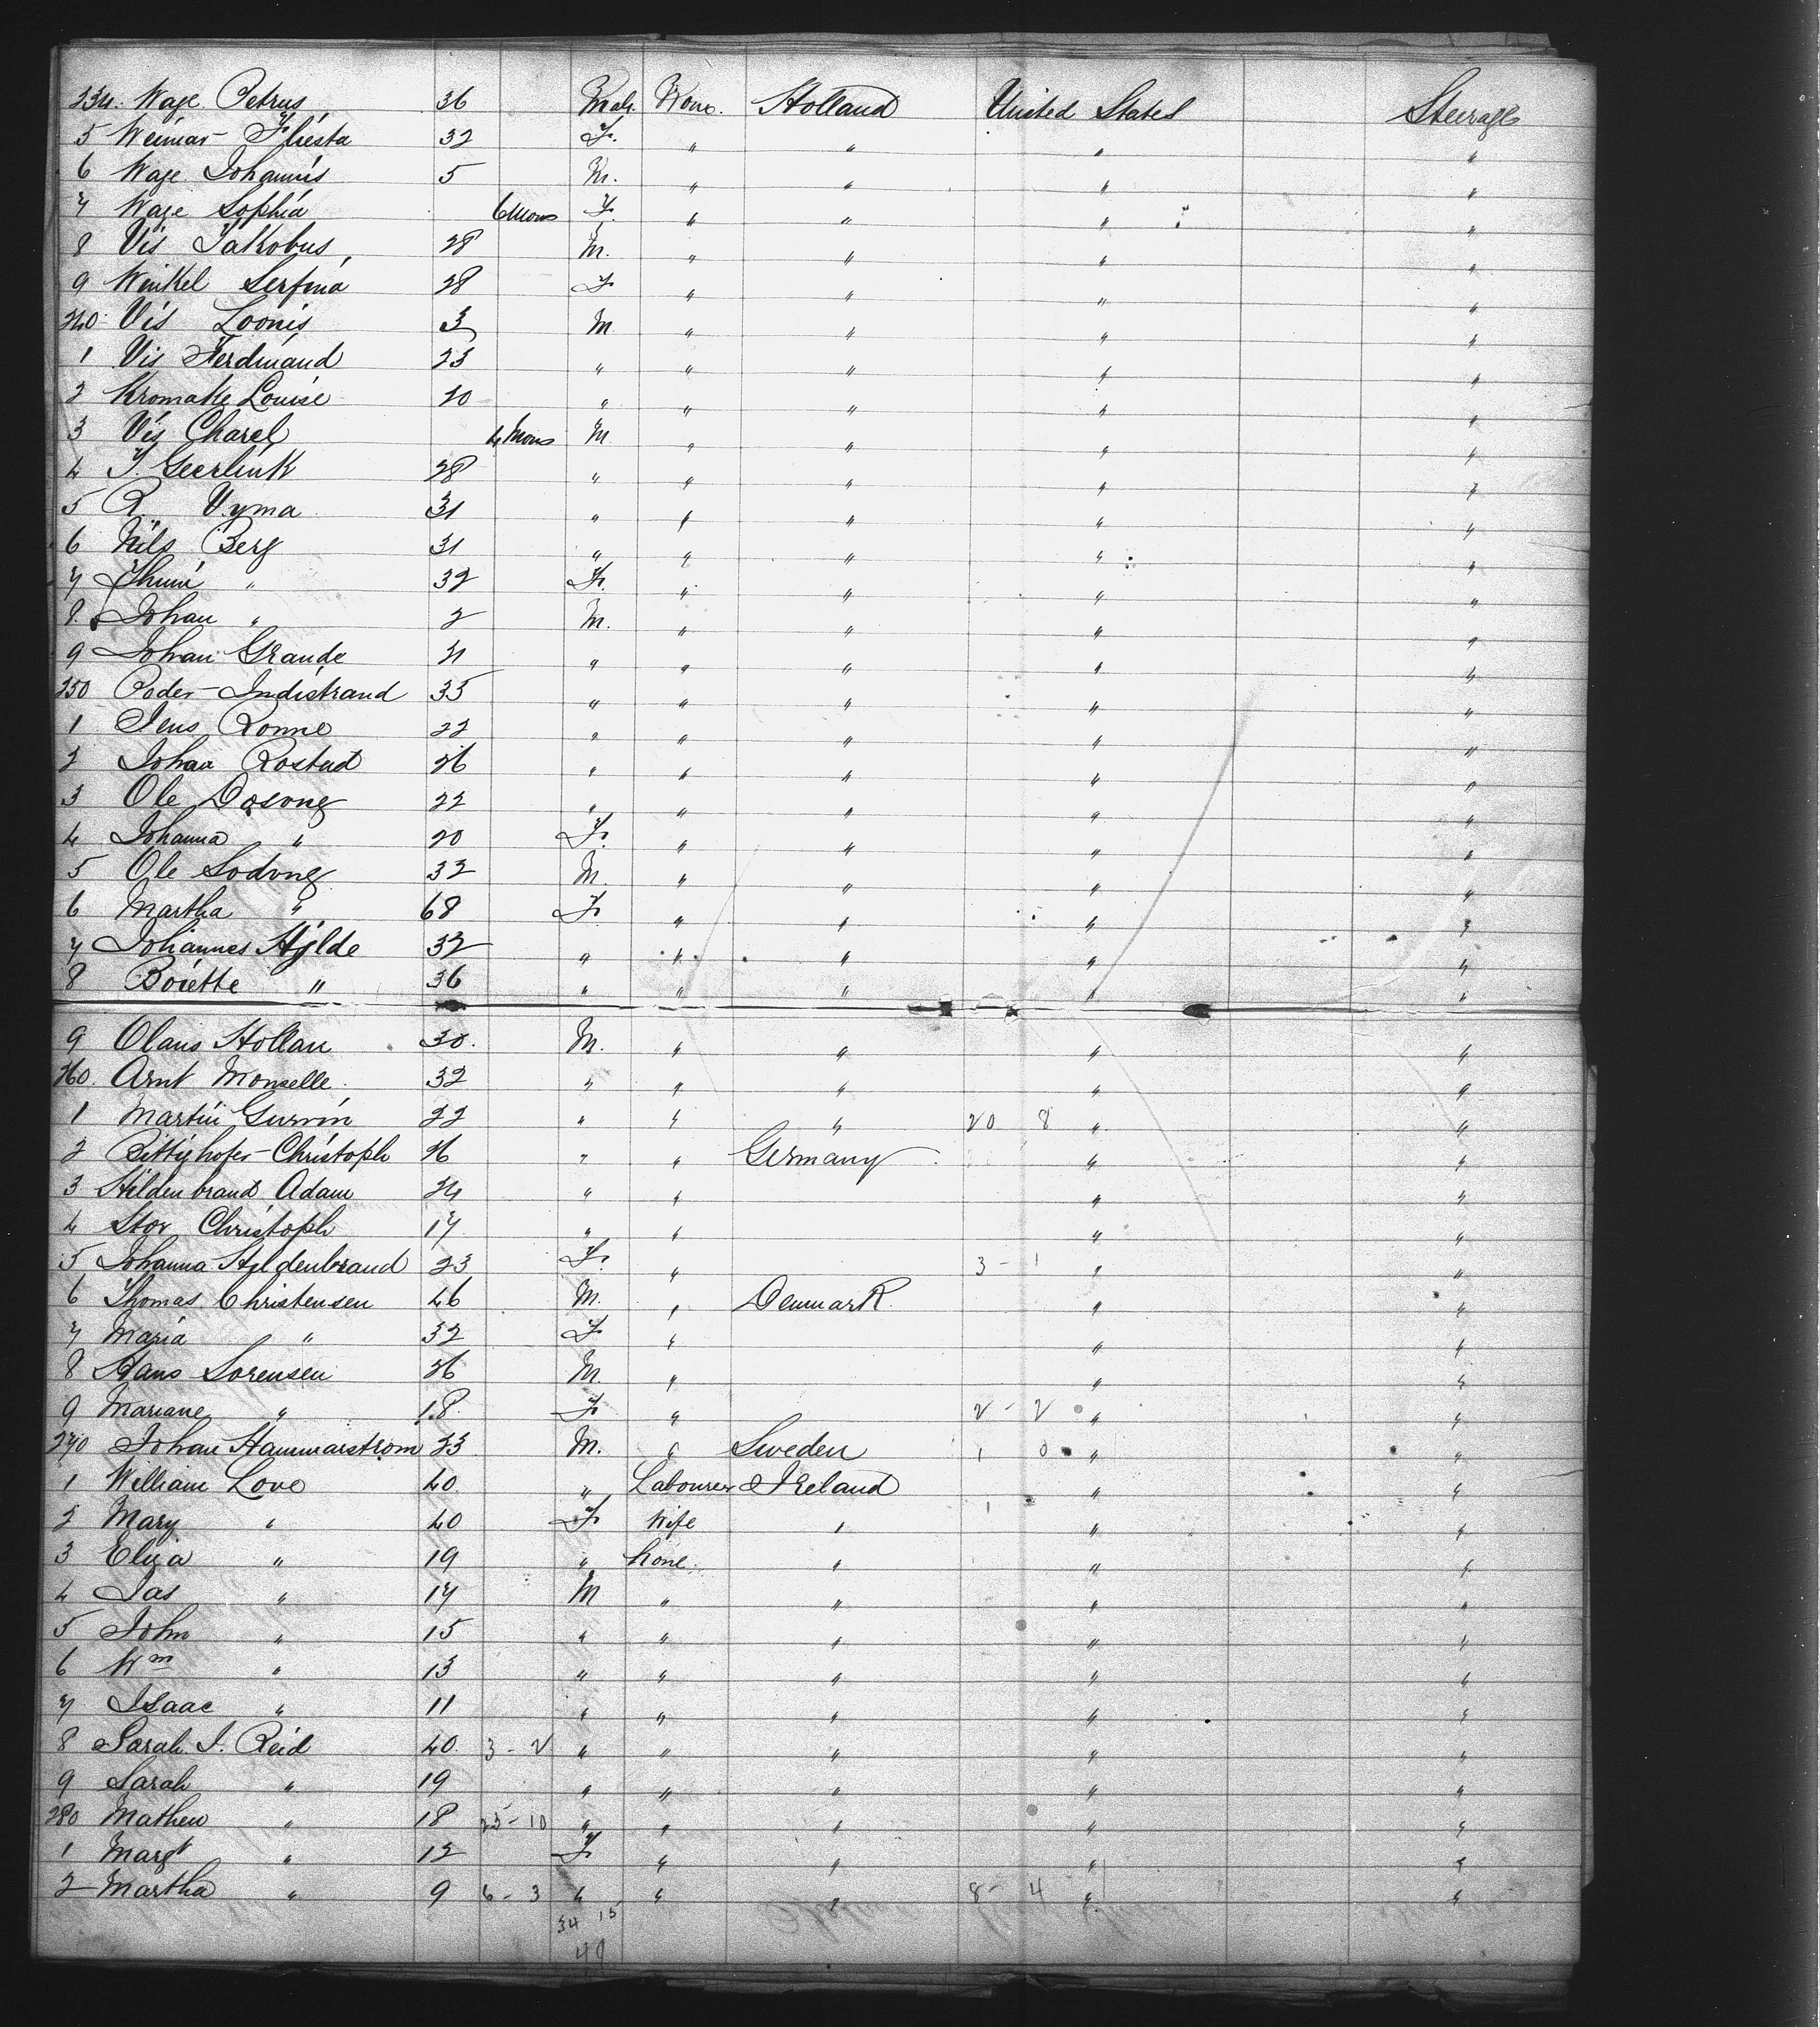 234. Wage Petrus 36 Male. None. Holland United States Steerage
5 Weimar - Fliesta 32 F. " " " "
6 Wage Johannis 5 M. " " " "
7 Wage Sophia 6 Mons F. " " " "
8 Vis Jakobus 28 M. " " " "
9 Winkel Serfina 28 F " " " "
240 Vis Loonis 3 M " " " "
1 Vis Ferdinand 23 " " " " "
2 Kromatte Louise 20 " " " " "
3 Vis Charel 4 Mons M " " " "
4 J. Geerlink 28 " " " " "
5 R. Vyma 31 " " " " "
6 Nils Berg 31 " " " " "
7 " 32 F. " " " "
8. Johan " 2 M. " " " "
9 Johan Grande 21 " " " " "
250 Peder - Indistrand 35 " " " " "
1 Jens Ronne 22 " " " " "
2 Johan Rostad 26 " " " " "
3 Ole Dosong 22 " " " " "
4 Johanna " 20 F. " " " "
5 Ole Sodvng 32 M. " " " "
6 Martha " 68 F. " " " "
7 Johannes Hylde 32 " " " " "
8 Boiette " 36 " " " " "
9 Olaus Hollan 30. M. " " " "
260. Arnt Monselle. 32 " " " " "
1 Martin Gurvin 22 " " " 20 8 " "
2 Bittighofer - Christoph 26 " " Germany " "
3 Hildenbrand Adam 24 " " " "
4 Stor Christoph 17 " " " "
5 Johanna Hildenbrand 23 F. " 3 - 1 " "
6 Thomas Christensen 46 M. " Denmark. " "
7 Maria " 32 F " " "
8 Hans Sorensen 26 M. " " "
9 Mariane " 18 F " 2 - 2 " "
270 Johan Hammarstrom 23 M. " Sweden 1 0 " "
1 William Love 40 " Labourer Ireland " "
2 Mary " 40 F Wife " " "
3 Eliza " 19 " None. " " "
4 Jas " 17 M " " " "
5 John " 15 " " " " "
6 Wm " 13 " " " " "
7 Isaac " 11 " " " " "
8 Sarah J. Reid 40. 3 - 2 " " " " "
9 Sarah " 19 " " " " "
280 Mathew " 18 25 - 10 " " " " "
1 Margt " 12 F " " " "
2 Martha " 9 6 - 3 " " " 8 - 4 " "
34 15
49